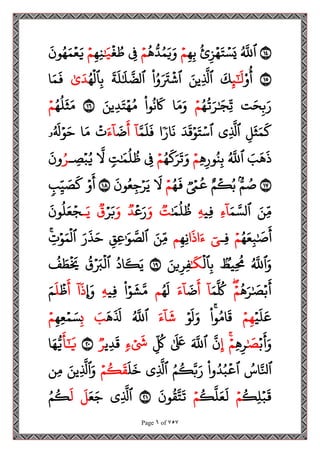 ١٤ ٱللَّهُ يَسْتَهْزِئُ بِهِمْ وَيَمُدُّهُمْ فِى طُغْيَٰنِهِمْ يَعْمَهُونَ
١٥ أُو۟لَٰٓئِكَ ٱلَّذِينَ ٱشْتَرَوُا۟ ٱلضَّلَٰلَةَ بِٱلْهُدَىٰ فَمَا
رَبِحَت تِّجَٰرَتُهُمْ وَمَا كَانُوا۟ مُهْتَدِينَ ١٦ مَثَلُهُمْ
كَمَثَلِ ٱلَّذِى ٱسْتَوْقَدَ نَارًا فَلَمَّآ أَضَآءَتْ مَا حَوْلَهُۥ
ذَهَبَ ٱللَّهُ بِنُورِهِمْ وَتَرَكَهُمْ فِى ظُلُمَٰتٍ لَّا يُبْصِرُونَ
١٧ صُمٌّۢ بُكْمٌ عُمْىٌ فَهُمْ لَا يَرْجِعُونَ ١٨ أَوْ كَصَيِّبٍ
مِّنَ ٱلسَّمَآءِ فِيهِ ظُلُمَٰتٌ وَرَعْدٌ وَبَرْقٌ يَجْعَلُونَ
أَصَٰبِعَهُمْ فِىٓ ءَاذَانِهِم مِّنَ ٱلصَّوَٰعِقِ حَذَرَ ٱلْمَوْتِ ۚ
وَٱللَّهُ مُحِيطٌۢ بِٱلْكَٰفِرِينَ ١٩ يَكَادُ ٱلْبَرْقُ يَخْطَفُ
أَبْصَٰرَهُمْ ۖ كُلَّمَآ أَضَآءَ لَهُم مَّشَوْا۟ فِيهِ وَإِذَآ أَظْلَمَ
عَلَيْهِمْ قَامُوا۟ ۚ وَلَوْ شَآءَ ٱللَّهُ لَذَهَبَ بِسَمْعِهِمْ
وَأَبْصَٰرِهِمْ ۚ إِنَّ ٱللَّهَ عَلَىٰ كُلِّ شَىْءٍ قَدِيرٌ ٢٠ يَٰٓأَيُّهَا
ٱلنَّاسُ ٱعْبُدُوا۟ رَبَّكُمُ ٱلَّذِى خَلَقَكُمْ وَٱلَّذِينَ مِن
قَبْلِكُمْ لَعَلَّكُمْ تَتَّقُونَ ٢١ ٱلَّذِى جَعَلَ لَكُمُ
Page ٦ of ٧٥٧